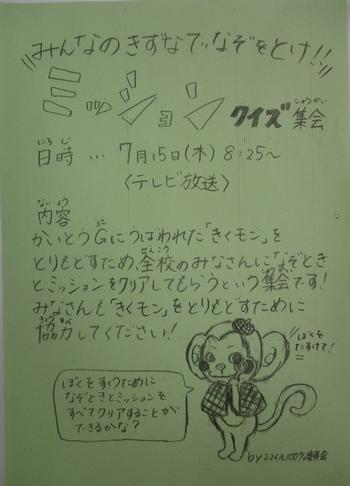 みんなのきずなでなぞをとけ!!
ミッション
クイズ集会
しゅうかい
にちじ
日時…7月15日(木)8:25~
〈テレビ放送〉
ないよう
内容
かいとうGにうばわれた「きくモン」を
とりもどすため、全校のみなさんになぞとき
ぜんこう
とミッションをクリアしてもらうという集会です!
みなさんも「きくモン」をとりもどすために
きょうりょく
協力してください!
ぼくを
たすけて!
ぼくをすくうために
なぞときとミッションを
すべてクリアすることが
できるかな?
byスマイル100%委員会